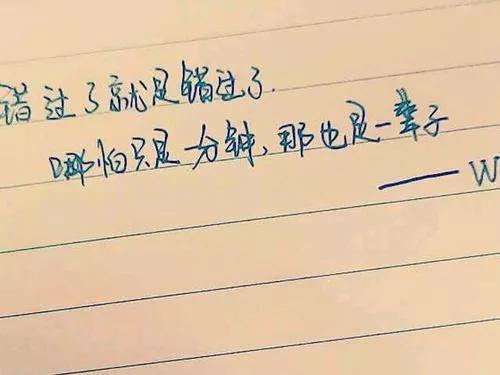 错过了就是错过了.
哪怕只是一分钟,那也是一辈子
——W